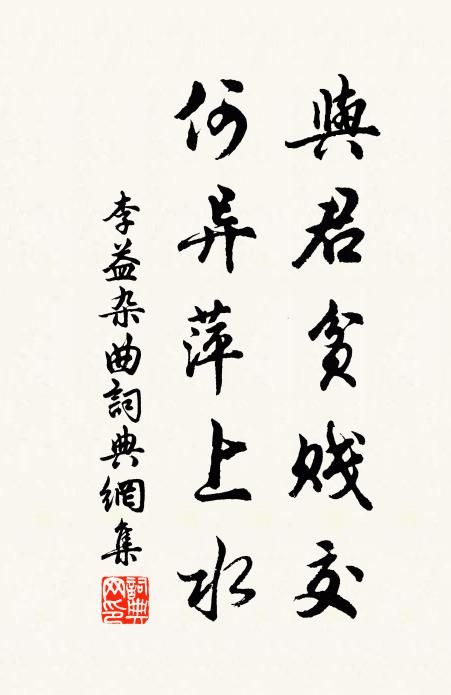 與君貧賤交
何异萍上水
李益杂曲詞典網集
詞典
网印